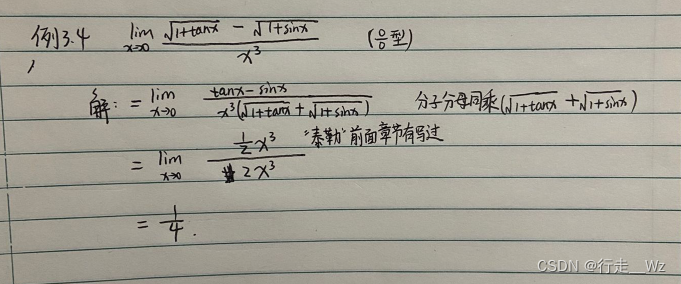 例3.4 lim x→0 (√1+tanx − √1+sinx) / x³ (0/0型)
解: = lim x→0 (tanx − sinx) / x³(√1+tanx + √1+sinx) 分子分母同乘(√1+tanx + √1+sinx)
= lim x→0 (1/2 x³) / 2x³ "泰勒"前面章节有写过
= 1/4.
CSDN @行走__Wz